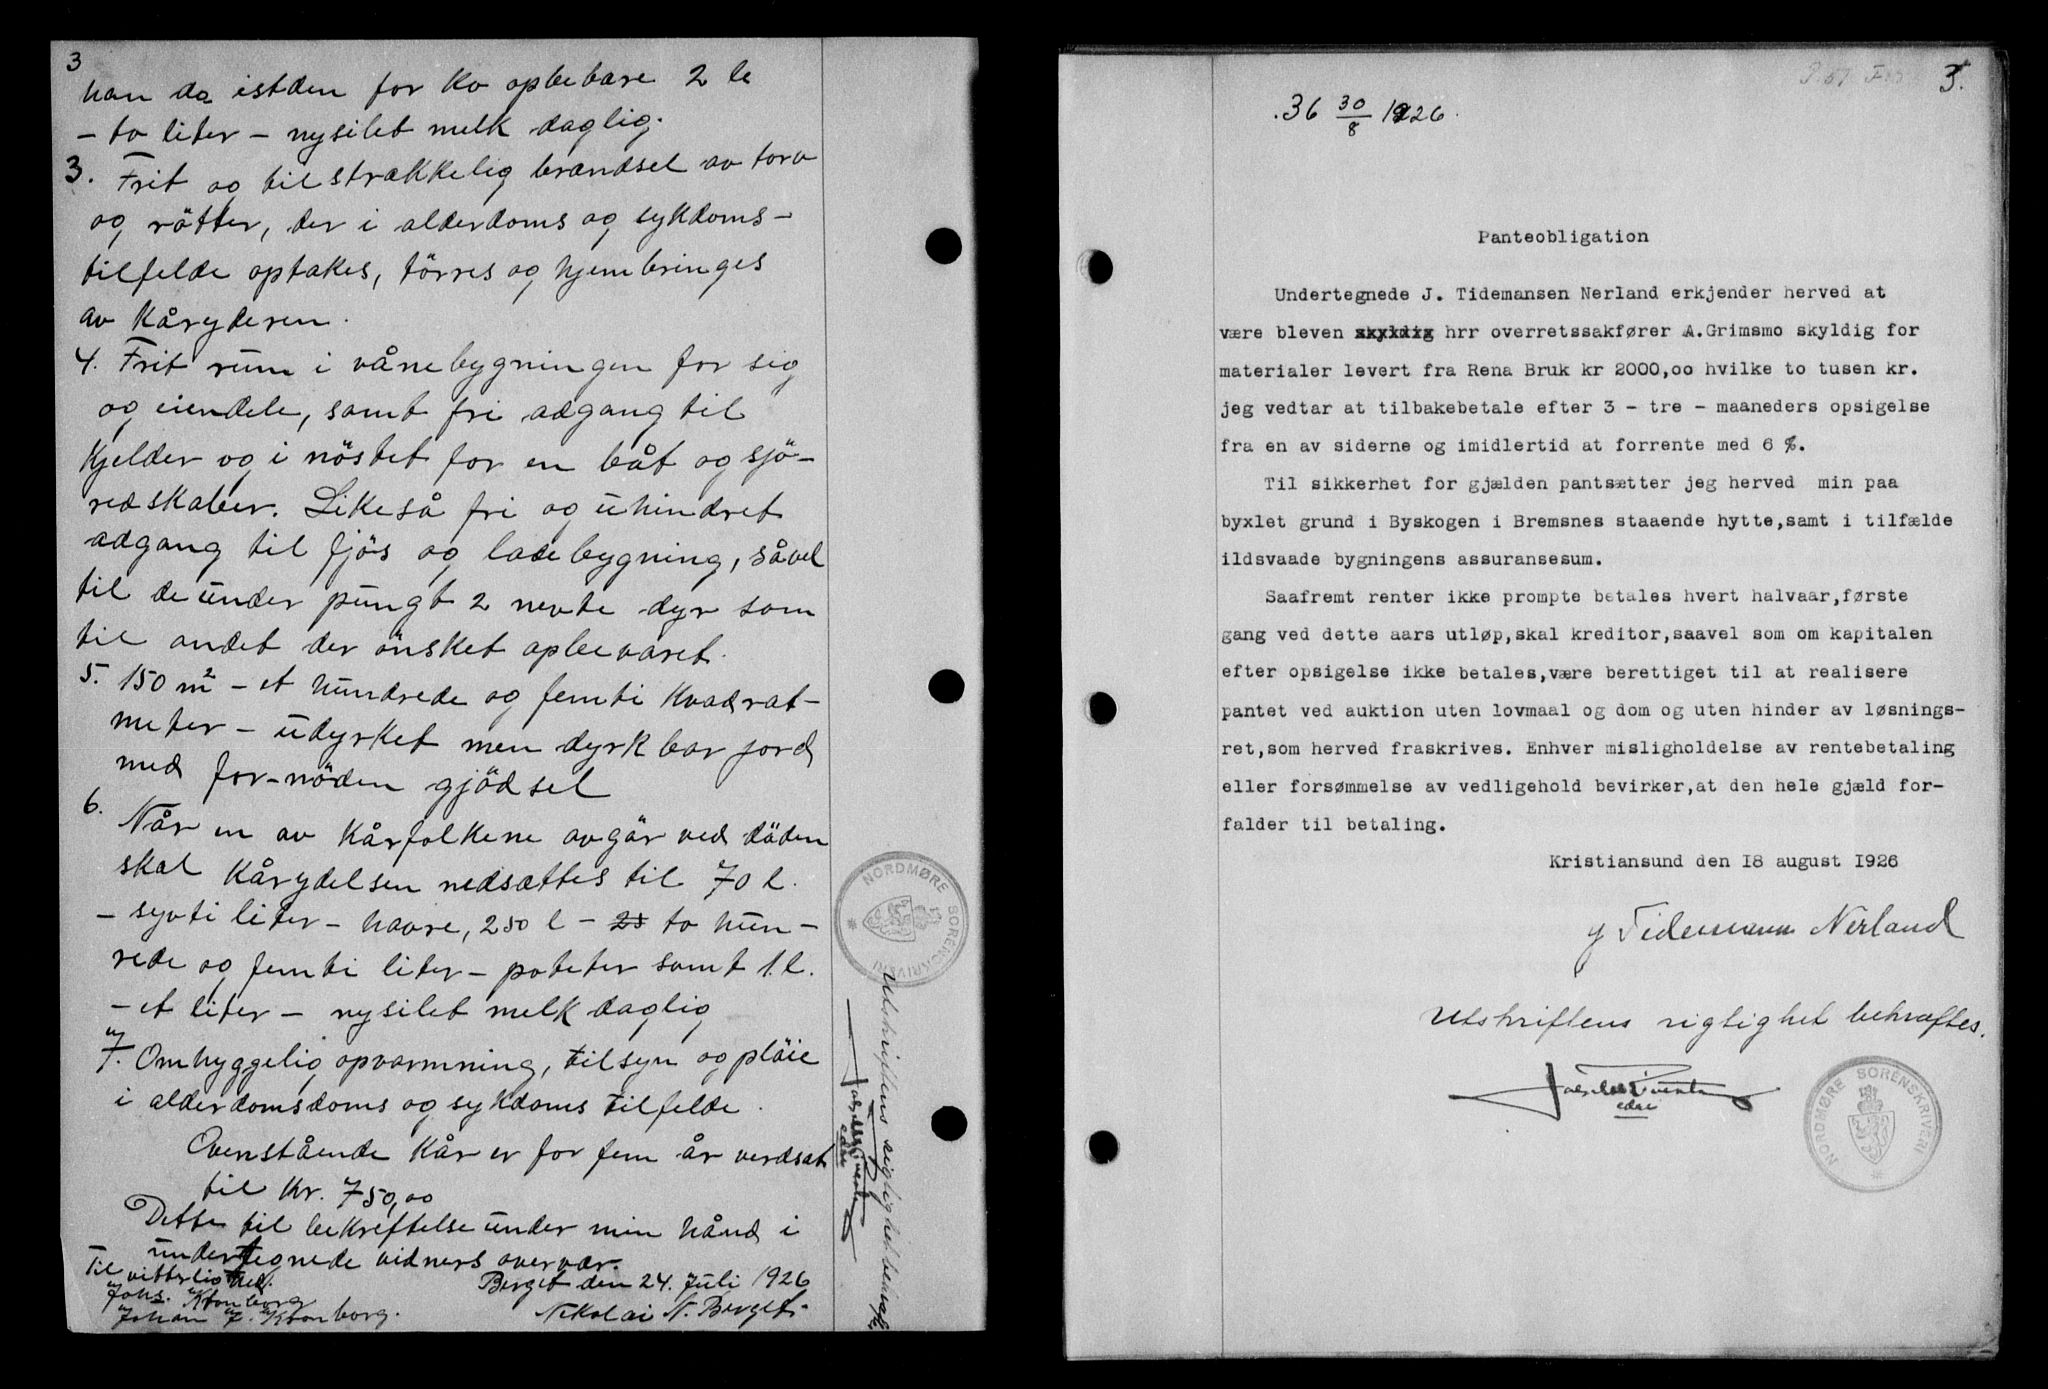 3
han da istden for Ko opbebære 2 le
- to liter - nysilet melk daglig.
3. Frit og tilstrækkelig brændsel av torv
og rötter, der i alderdoms og sykdoms-
tilfelde optakes, törres og hjembringes
av Kåryderen.
4. Frit rum i vånebygningen for sig
og eiendele, samt fri adgang til
Kjelder og i nöstet for en båt og sjö-
redskaber. Likeså fri og uhindret
adgang til fjös og ladebygning, såvel
til de under pungt 2 nevte dyr som
til andet der önsket opbevaret.
5. 150 m² - et hundrede og femti Kvadrat-
meter - udyrket men dyrkbar jord
med for-nöden gjödsel
6. Når en av Kårfolkene avgår ved döden
skal Kårydelsen nedsættes til 70 l.
- sytti liter - havre, 250 l - 25 to hun-
rede og femti liter - poteter samt 1 l.
- et liter - nysilet melk daglig
7. Omhyggelig opvarmning, tilsyn og pläie
i alderdomsdoms og sykdoms tilfelde.
Ovenstående Kår er for fem år verdsat
til Kr. 750,00
Dette til bekreftelse under min hånd i
undertegnede vidners overvær.
Berget den 24. Juli 1926
Nikolai N. Berget.
Til vitterlighed.
Johs. Kvonborg
Johan J. Kvonborg.
NORDMØRE SORENSKRIVERI
Utskriftens rigtighet bekræftes
edsv
3.
36 30/8 1926.
Panteobligation
Undertegnede J. Tidemansen Nerland erkjender herved at
være bleven skyldig hrr overretssakfører A.Grimsmo skyldig for
materialer levert fra Rena Bruk kr 2000,oo hvilke to tusen kr.
jeg vedtar at tilbakebetale efter 3 - tre - maaneders opsigelse
fra en av siderne og imidlertid at forrente med 6 %.
Til sikkerhet for gjælden pantsætter jeg herved min paa
byxlet grund i Byskogen i Bremsnes staaende hytte,samt i tilfælde
ildsvaade bygningens assuransesum.
Saafremt renter ikke prompte betales hvert halvaar,første
gang ved dette aars utløp,skal kreditor,saavel som om kapitalen
efter opsigelse ikke betales,være berettiget til at realisere
pantet ved auktion uten lovmaal og dom og uten hinder av løsnings-
ret,som herved fraskrives. Enhver misligholdelse av rentebetaling
eller forsømmelse av vedligehold bevirker,at den hele gjæld for-
falder til betaling.
Kristiansund den 18 august 1926
J Tidemann Nerland
Utskriftens rigtighet bekræftes.
edsv
NORDMØRE SORENSKRIVERI